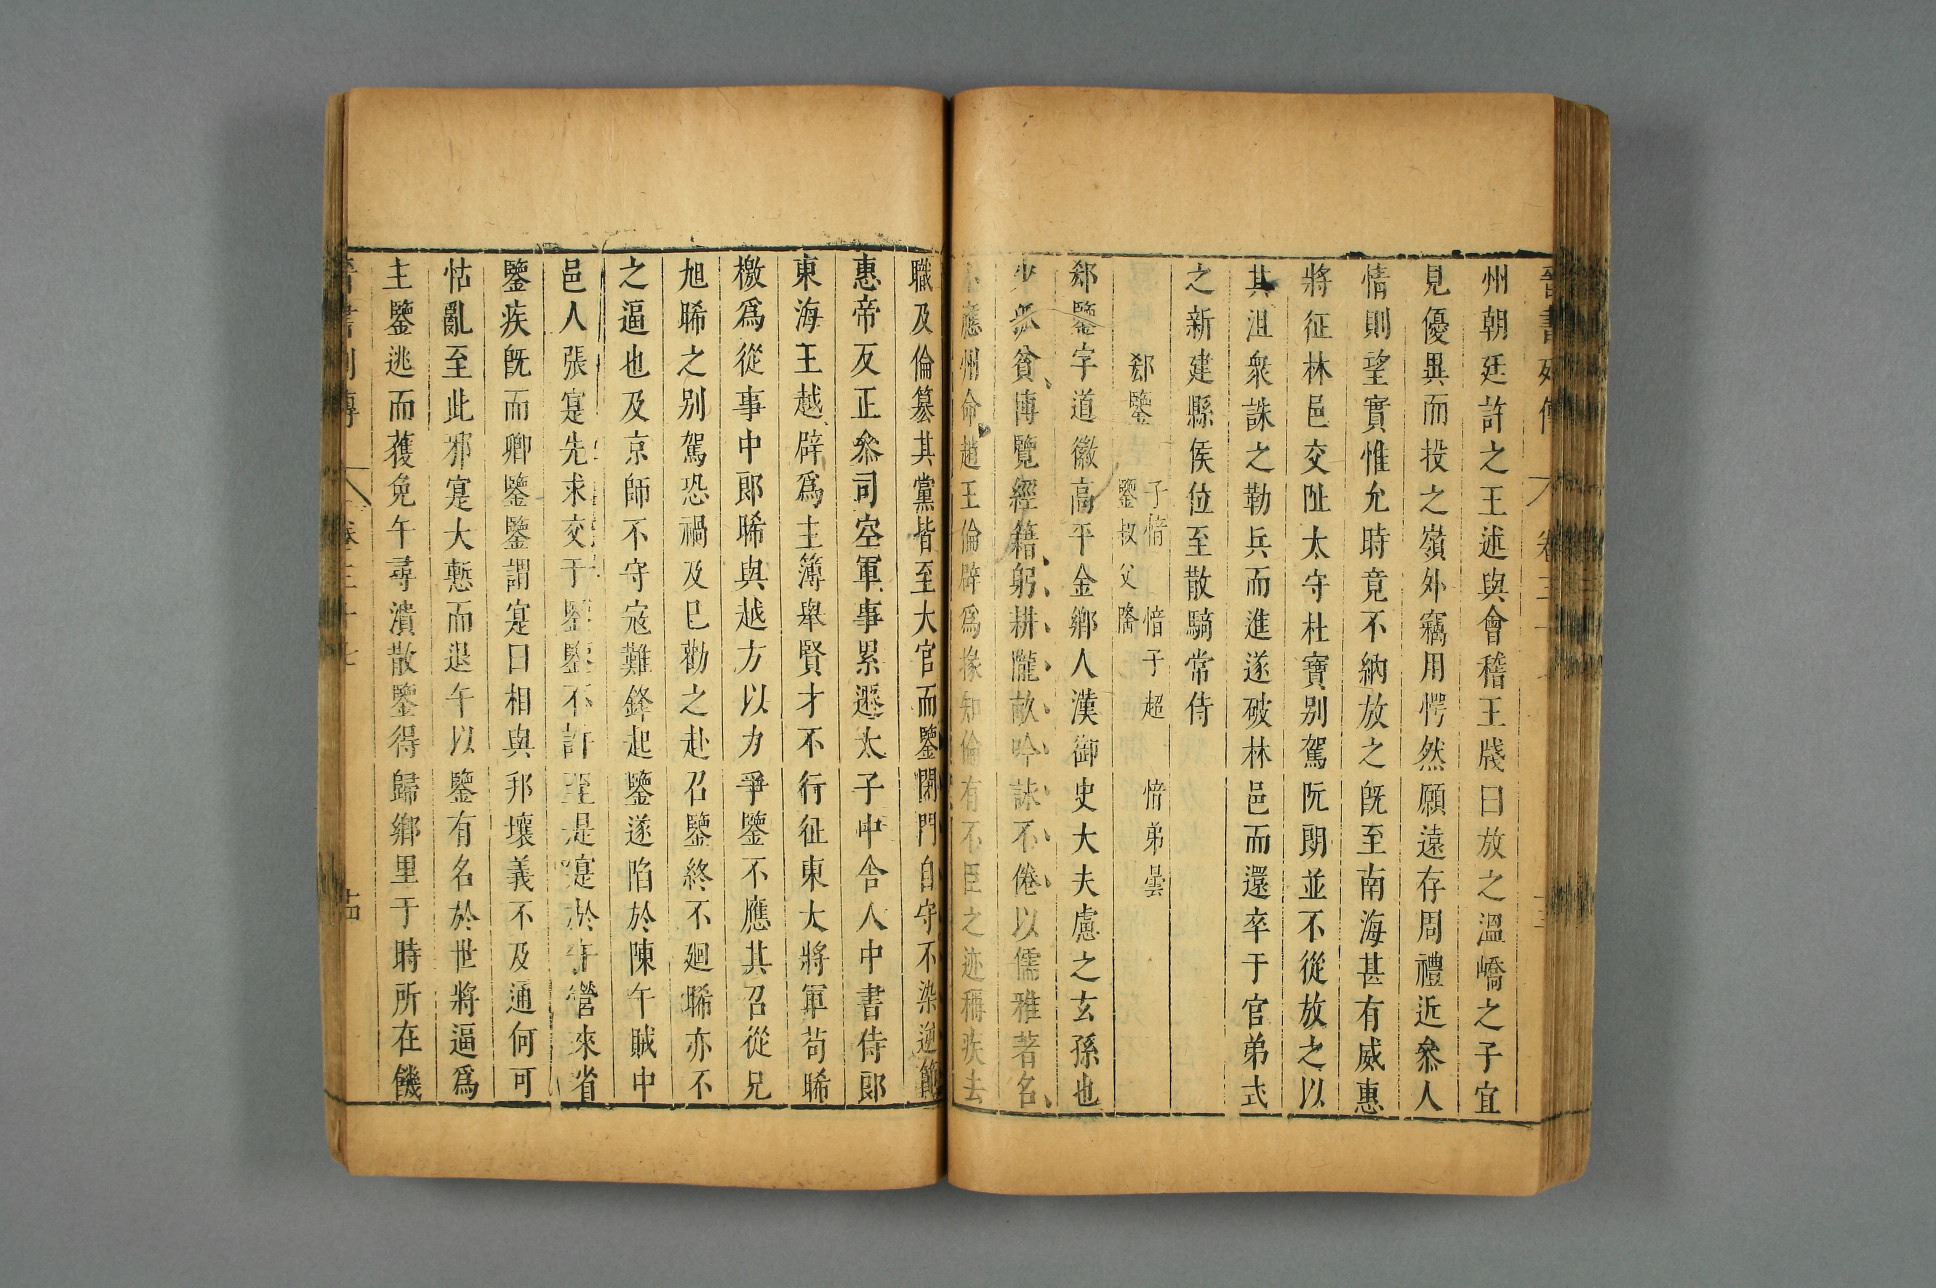 州朝廷許之王述與會稽王牋曰放之溫嶠之子宜
見優異而投之嶺外竊用愕然願遠存周禮近叅人
情則望實惟允時竟不納放之旣至南海甚有威惠
將征林邑交阯太守杜寶别駕阮朗並不從放之以
其沮衆誅之勒兵而進遂破林邑而還卒于官弟式
之新建縣侯位至散騎常侍
郄鑒
子愔　愔子超　愔弟曇
鑒叔父隆
郄鑒字道徽高平金鄉人漢御史大夫慮之玄孫也
少孤貧博覽經籍躬耕隴畝吟詠不倦以儒雅著名
不應州命趙王倫辟爲掾知倫有不臣之迹稱疾去
職及倫篡其黨皆至大官而鑒閉門自守不染逆節
惠帝反正叅司空軍事累遷太子中舍人中書侍郎
東海王越辟爲主簿舉賢才不行征東大將軍苟晞
檄爲從事中郎晞與越方以力爭鑒不應其召從兄
旭晞之别駕恐禍及已勸之赴召鑒終不廻晞亦不
之逼也及京師不守寇難鋒起鑒遂陷於陳午賊中
邑人張寔先求交于鑒鑒不許至是寔於午營來省
鑒疾旣而卿鑒鑒謂寔曰相與邦壤義不及通何可
怙亂至此邪寔大慙而退午以鑒有名於世將逼爲
主鑒逃而獲免午尋潰散鑒得歸鄉里于時所在饑
晉書列傳　卷三十七　十四